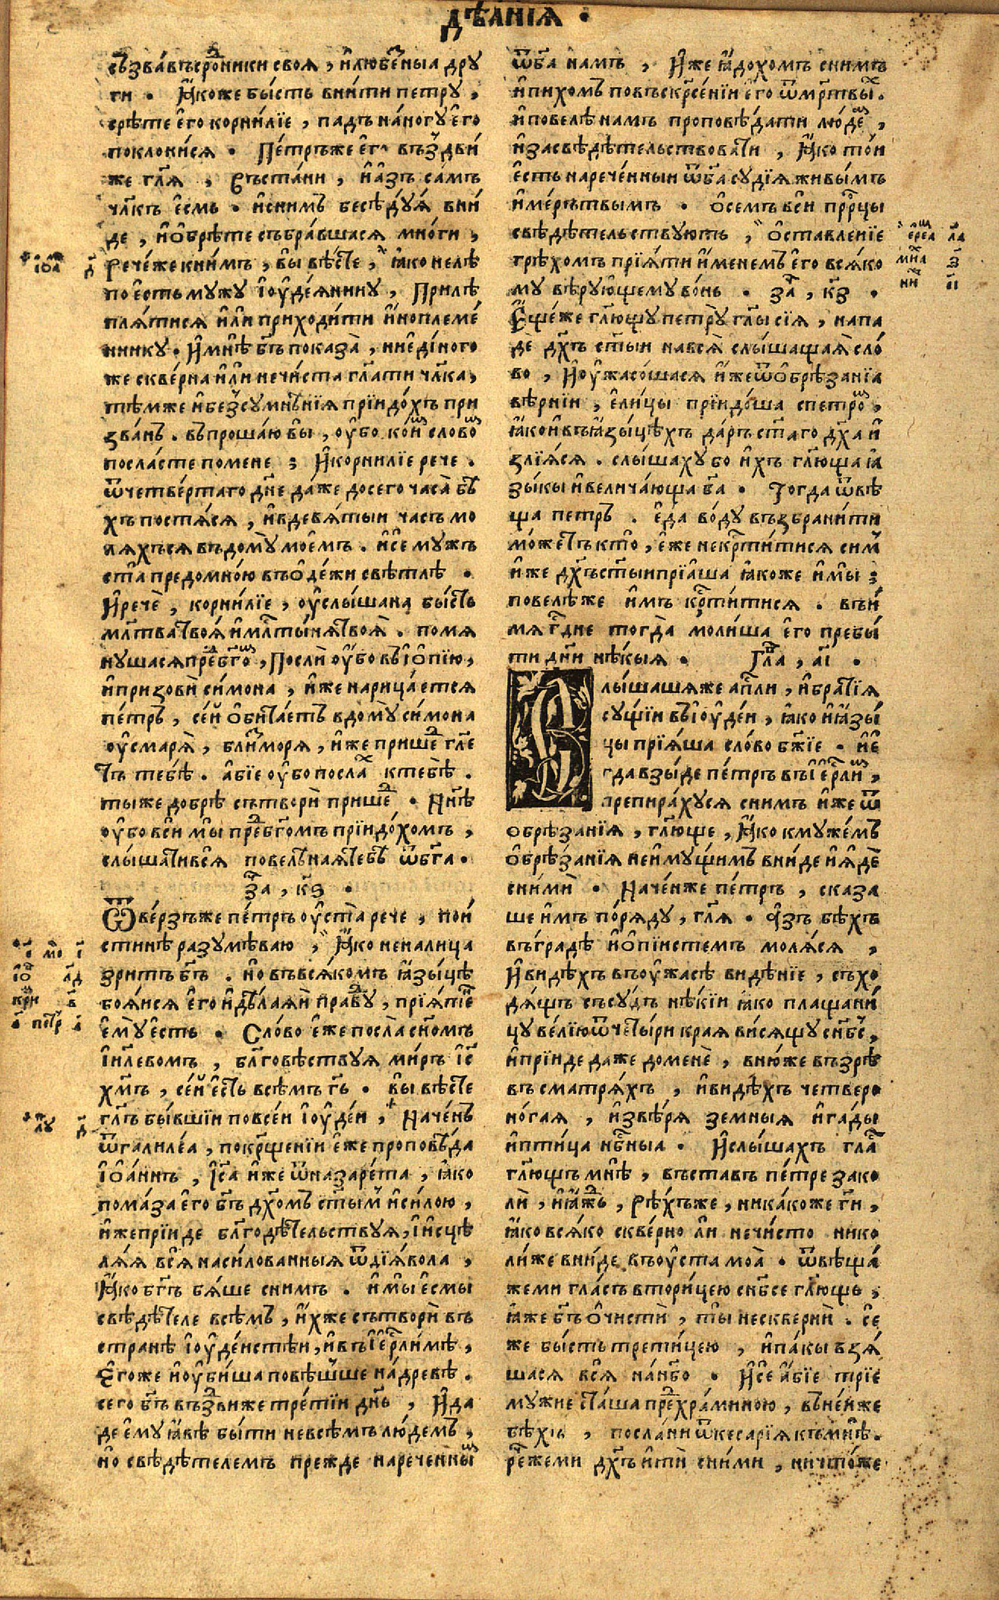 дѣанїꙗ ·
съзва́въ ср́одники своя̀ , и҆любе́зныа дру
ги · Ꙗ҆коже бы́сть вни́ти петру̀ ,
срѣ́те є҆го̀ корни́лїе , па́дъ на́ногу є҆го̀
поклони́ся · Пе́тръже є҆го̀ въздви́
же гл҃я , въста́ни , и҆а҆зъ са́мъ
чл҃къ є҆смь · и҆сни́мъ бесѣ́дуѧ вни́
де , и҆ѡ҆брѣ́те събра́вшася мно́ги ,
Рече́же кни́мъ , вы̀ вѣ́сте , ꙗ҆ко нелѣ́
по є҆сть му́жу і҆ѹде́янину , Прилѣ
пля́тися и҆лѝ приходи́ти и҆ноплеме́
ннику · И҆мнѣ̀ бг҃ъ показа̀ , ниєди́ного
же скве́рна и҆лѝ нечи́ста гл҃ати чл҃ка ,
тѣ́мже и҆без̾сумнѣ́нїя прїидо́хъ при
зва́нъ · въпроша́ю вы̀ , ѹ҆́бо ко́имъ словомъ
посла́сте помене ; И҆корни́лїе рече ·
ѿчетве́ртаго дн҃е да́же досего̀ часа̀ бѣ́
хъ постя́ся , и҆вдевя́тыи ча́съ мо
ля́хъся въдому̀ мое́мъ · и҆сѐ му́жъ
ста̀ предомно́ю въѡ҆де́жи свѣ́тлѣ ·
И҆речѐ , корни́лїе , ѹ҆слы́шана бы́сть
мл҃тва твоѧ̀ и҆мл҃тыня твоѧ̀ · помя
ну́шася пред̾бг҃омъ , Послѝ ѹ҆́бо въі҆ѻпі́ю ,
и҆призовѝ си́мона , и҆́же нарица́ется
пе́тръ , се́й ѡ҆бита́етъ в дому̀ си́мона
ѹ҆смаря̀ , бли́з̾ моря , и҆́же прише́д̾ гл҃е
тъ тебѣ̀ · а҆́бїе ѹ҆́бо посла́хъ ктебѣ̀ ·
ты́же добрѣ̀ сътворѝ прише́д̾ · Нн҃ѣ
ѹ҆́бо всѝ мы̀ пред̾бг҃омъ прїидо́хомъ ,
слы́шати вся̀ повелѣ́ная тебѣ̀ ѿбг҃а ·
за҃ , к҃ѕ ·
Ѿве́рзъже пе́тръ ѹ҆ста̀ рече , пои́
стинѣ разумѣ́ваю , Ꙗ҆ко неналица̀
зри́тъ бг҃ъ · но въвся́комъ ꙗ҆зы́цѣ
боя́ися є҆го̀ и҆дѣ́лаяи пра́вду , прїя́тенъ
є҆му̀ є҆сть · Сло́во є҆́же посла̀ сн҃омъ
і҆и҃левомъ , бл҃говѣ́ствуя ми́ръ і҆с҃
хм҃ъ , се́й є҆́сть всѣ́мъ гь҃ · вы̀ вѣ́сте
гл҃ъ бы́вшїи повсе́и і҆ѹде́и , Наче́нъ
ѿгалиле́а , покрщ҃енїи є҆́же проповѣ́да
і҆ѡа́ннъ , і҆с҃а и҆́же ѿназаре́та , ꙗ҆ко
пома́за є҆го̀ бг҃ъ дх҃омъ ст҃ы́мъ и҆си́лою ,
и҆́же прїи́де бл҃годѣ́тельствуя , і҆и҆сцѣ
ля́я вся̀ наси́лованныя ѿдїя́вола ,
Ꙗ҆ко бг҃ъ бя́ше сни́мъ · и҆мы̀ є҆смы̀
свѣдѣ́теле всѣ́мъ , и҆́хже сътворѝ въ
странѣ̀ і҆ѹде́истѣи , и҆въі҆ер҃ли́мѣ ,
Є҆го́же и҆ѹ҆би́ша повѣ́шше на дре́вѣ ·
сего̀ бг҃ъ въздви́же тре́тїи дн҃ь , И҆да
дѐ є҆му̀ ꙗ҆́вѣ бы́ти невсѣ́мъ лю́демъ ,
но свѣдѣ́телемъ прежде нарече́ннымъ
ѿбг҃а намъ , И҆́же ꙗ҆до́хомъ сни́мъ
и҆пи́хомъ повъскр҃се́нїи є҆го̀ ѿмр҃твыхъ ·
и҆повелѣ̀ на́мъ проповѣ́дати лю́демъ ,
и҆засвѣдѣ́тельствовати , Ꙗ҆ко то́и
є҆сть нарече́нныи ѿбг҃а судїя̀ живы́мъ
и҆ме́ртвымъ · ѡ҆се́мъ всѝ прр҃цы
свѣдѣ́тельствуютъ , ѡ҆ставле́нїе
грѣхо́мъ прїя́ти и҆́менемъ є҆го̀ вся́ко
му вѣ́рующему во́нь · за҃ , к҃з ·
Є҆ще́же гл҃ющу петру̀ гл҃ы сїя̀ , напа
дѐ дх҃ъ ст҃ы́и нався̀ слы́шащаѧ сло́
во , И҆ѹ҆жасо́шася и҆́же ѿѡ҆брѣ́занїа
вѣ́рнїи , є҆ли́цы прїидо́ша спетро́мъ ,
ꙗ҆ко и҆въꙗ҆зы́цѣхъ да́ръ ст҃а́го дх҃а и҆
злїя́ся · слы́шаху бо и҆́хъ гл҃юща ꙗ҆
зы́ки и҆велича́юща бг҃а · Тогда̀ ѿвѣ
ща̀ петръ · є҆да̀ во́ду възбрани́ти
мо́жетъ кто̀ , є҆́же некр҃сти́тися си́мъ
и҆́же дх҃ъ ст҃ы́и прїя́ша ꙗ҆коже и҆мы̀ ;
повелѣ́же и҆́мъ кр҃сти́тися · въи҆́
мя гд҃не тогда̀ моли́ша є҆го̀ пребы́
ти дн҃и нѣ́кыя · Гла҃ , аі҃ ·
Слы́шашяже а҆пл҃и , и҆бра́тїя
су́щїи въі҆ѹде́и , ꙗ҆ко и҆ꙗ҆зы́
цы прїя́ша сло́во бж҃їе · и҆є҆
гда̀ взы́де пе́тръ въі҆ер҃ли́мъ ,
препира́хуся сни́мъ и҆́же ѿ
ѡ҆брѣ́занїя , гл҃юще , Ꙗ҆ко кмуже́мъ
ѡ҆брѣ́занїя неи҆му́щимъ вни́де и҆ꙗ҆дѐ
сни́ми · Наче́нже пе́тръ , сказа
ше и҆́мъ по́ряду , гл҃я · а҆́зъ бѣ́хъ
въгра́дѣ и҆ѻпі́истемъ моля́ся ,
И҆ви́дѣхъ въѹ҆́жасѣ видѣ́нїе , съхо
дя́щъ съсу́дъ нѣ́кїи ꙗ҆ко плащани́
цу ве́лїю ѿчеты́ри края вися́щу снб҃се ,
и҆прїи́де да́же доменѐ , вню́же възрѣ́
въ сматря́хъ , и҆ви́дѣхъ четверо
но́гая , и҆звѣ́ря земны́я и҆га́ды
и҆пти́ца нб҃ныа · И҆слы́шахъ гла́съ
гл҃ющъ мнѣ̀ , въста́въ пе́тре зако
лѝ , и҆ꙗ҆́ждь , рѣ́хъже , ника́коже гд҃и ,
ꙗ҆ко вся́ко скве́рно и҆лѝ нечи́сто нико
ли́же вни́де въѹ҆ста̀ моѧ̀ · ѿвѣща́
жеми гла́съ втори́цею снб҃се гл҃ющь ,
ꙗ҆же бг҃ъ ѡ҆чи́сти , ты̀ нескверни̇ · се́
же бы́сть трети́цею , и҆па́кы взя́
шася вся̀ на́нб҃о · И҆сѐ а҆́бїе трїѐ
му́жие ста́ша пред̾хра́миною , вне́йже
бѣ́хъ , по́слани ѿкесарі́я къмнѣ̀ ·
ре́чжеми дх҃ъ и҆тѝ сни́ми , ничто́же